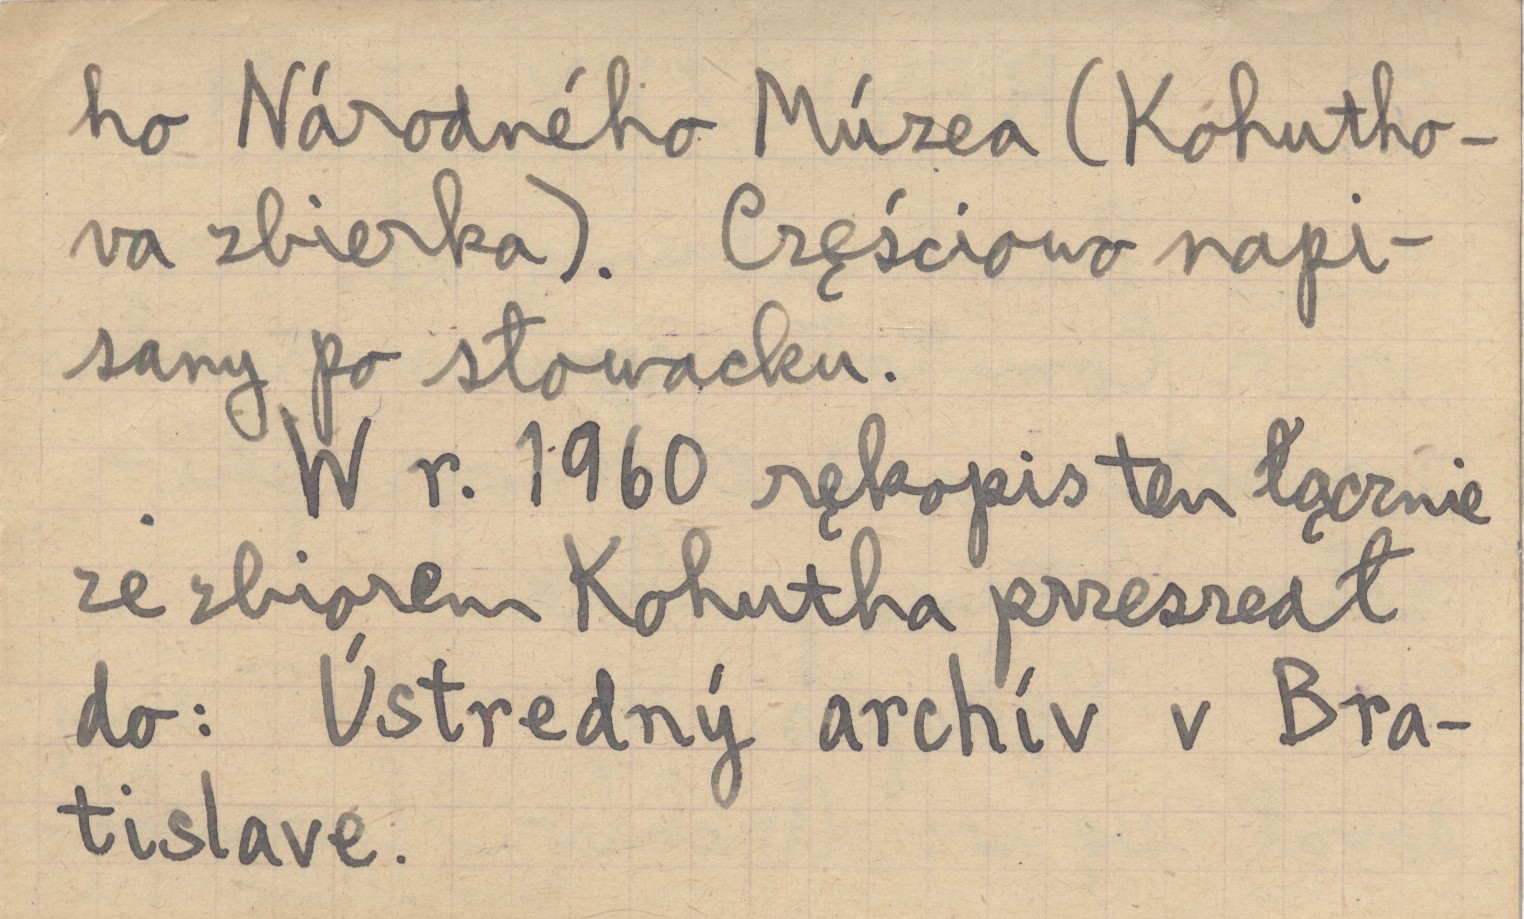 ho Národného Múzea (Kohutho-
va zbierka). Częściowo napi-
sany po słowacku.
W r. 1960 rękopis ten łącznie
ze zbiorem Kohutha przeszedł
do: Ústredný archív v Bra-
tislave.